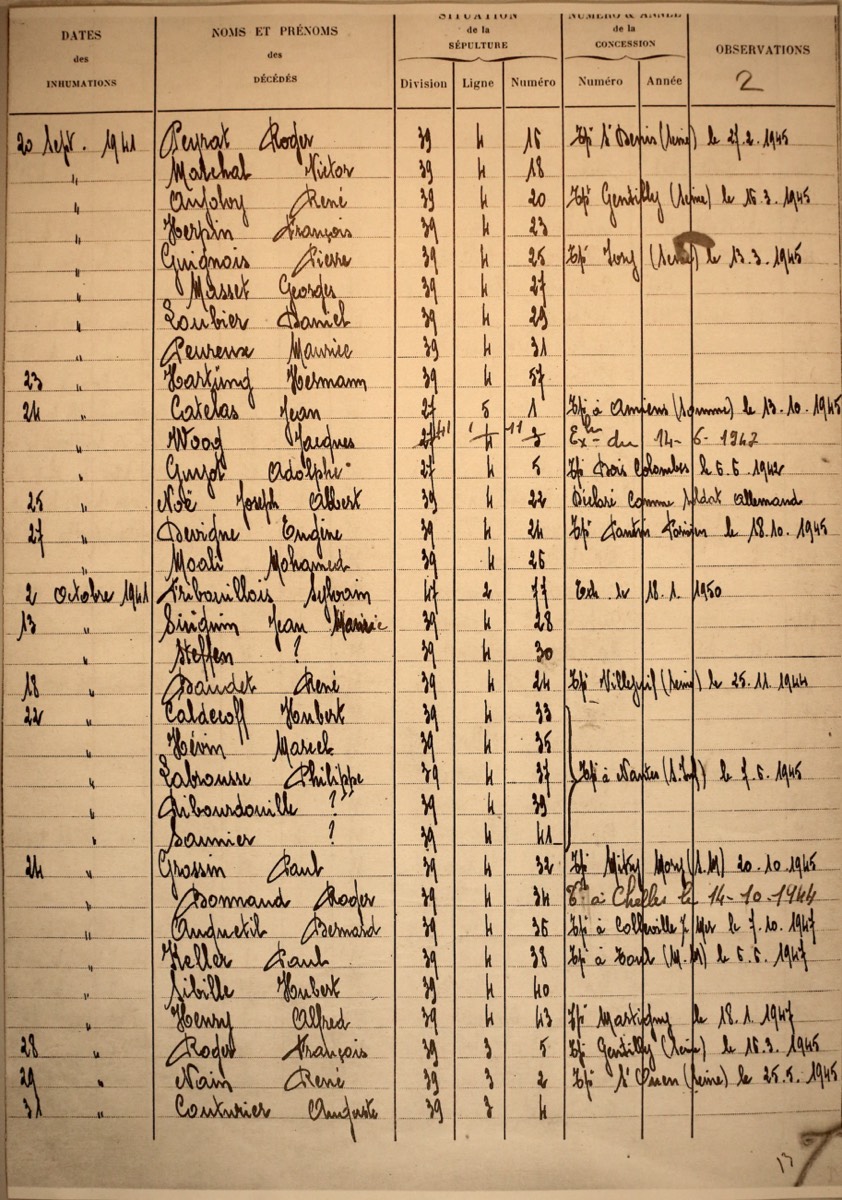 DATES des INHUMATIONS
NOMS ET PRÉNOMS des DÉCÉDÉS
SITUATION de la SÉPULTURE
NUMÉRO & ANNÉE de la CONCESSION
OBSERVATIONS
2
Division Ligne Numéro Numéro Année
20 Sept. 1941 Peyrat Roger 39 4 16 Tpé St Denis (Seine) le 27.2.1945
" Malchal Victor 39 4 18
" René 39 4 20 Tpé Gentilly (Seine) le 16.3.1945
" Herpin François 39 4 23
" Guignois Pierre 39 4 25 Tpé Ivry (Seine) le 13.3.1945
" Masset Georges 39 4 27
" Loubier Daniel 39 4 29
" Peureux Maurice 39 4 31
23 " Hartung Hermann 39 4 57
24 " Catelas Jean 27 5 1 Tpé à Amiens (Somme) le 13.10.1945
" Woog Jacques 3 du 14-6-1947
" Guyot Adolphe 27 4 5 Tpé Bois Colombes le 6.6.1942
25 " Noë Joseph Albert 39 4 22 Déclaré comme soldat allemand
27 " Devigne Eugène 39 4 24 Tpé Pantin Parisien le 18.10.1945
" Moali Mohamed 39 4 26
2 Octobre 1941 Tribouillois Sylvain 47 2 77 Exh. le 18.1.1950
13 " Jean Maurice 39 4 28
" Steffen ? 39 4 30
18 " Baudet René 39 4 24 Tpé Villejuif (Seine) le 25.11.1944
22 " Caldecoff Hubert 39 4 33
" Hévin Marcel 39 4 35
" Labrousse Philippe 39 4 37 Tpé à Nantes (S.Inf) le 7.6.1945
" Ribourdouille ? 39 4 39
" Saunier ? 39 4 41
24 " Grossin Paul 39 4 32 Tpé Mitry Mory (S.M) 20.10.1945
" Bonnand Roger 39 4 34 Tpé à Chelles le 14-10-1944
" Anquetil Bernard 39 4 36 Tpé à Colleville s/ Mer le 7.10.1947
" Keller Paul 39 4 38 Tpé à Toul (M.M) le 6.6.1947
" Sibille Hubert 39 4 40
" Henry Alfred 39 4 43 Tpé Martigny le 18.1.1947
28 " Roger François 39 3 5 Tpé Gentilly (Seine) le 16.3.1945
29 " Nain René 39 3 2 Tpé St Ouen (Seine) le 25.5.1945
31 " Couturier Auguste 39 3 4
13